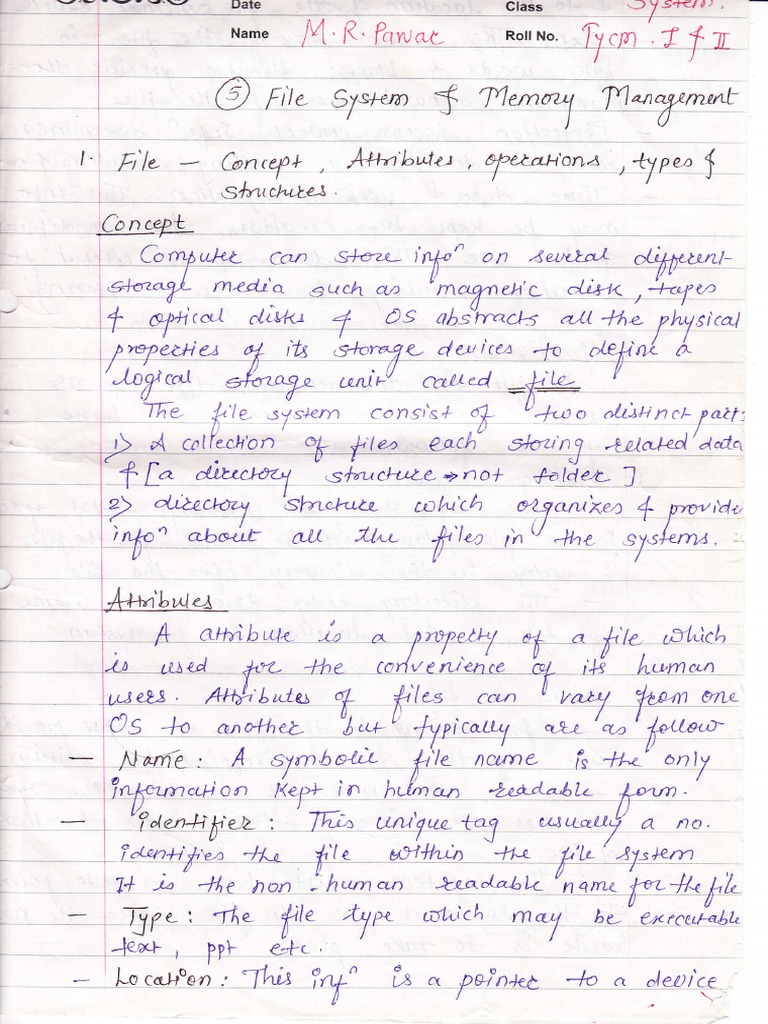 Date
Class System.
Name M.R.Pawar Roll No. Tycm. I & II
⑤ File System & Memory Management
1. File — Concept, Attributes, operations, types &
structures.
Concept
Computer can store infoⁿ on several different
storage media such as magnetic disk, tapes
& optical disks & OS abstracts all the physical
properties of its storage devices to define a
logical storage unit called file
The file system consist of two distinct part:
1) A collection of files each storing related data
& [a directory structure → not folder ]
2) directory structure which organizes & provide
infoⁿ about all the files in the systems.
Attributes
A attribute is a property of a file which
is used for the convenience of its human
users. Attributes of files can vary from one
OS to another but typically are as follow
— Name : A symbolic file name is the only
information kept in human readable form.
— identifier : This unique tag usually a no.
identifies the file within the file system
It is the non-human readable name for the file
— Type : The file type which may be executable
text, ppt etc.
— Location : This infⁿ is a pointer to a device